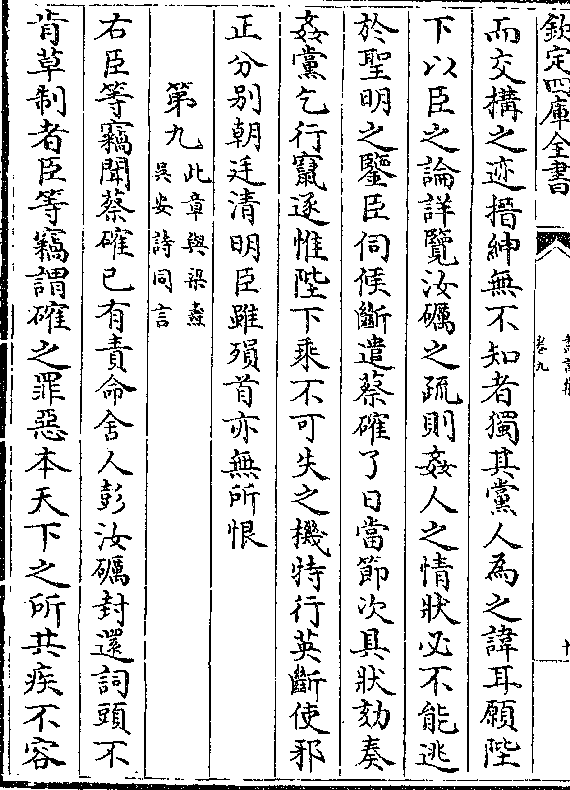 欽定四庫全書
卷九
而交搆之迹搢紳無不知者獨其黨人為之諱耳願陛
下以臣之論詳覽汝礪之疏則姦人之情狀必不能逃
於聖明之鑒臣伺候斷遣蔡確了日當節次具狀劾奏
姦黨乞行竄逐惟陛下乘不可失之機特行英斷使邪
正分别朝廷清明臣雖殞首亦無所恨
第九此章與梁燾
吳安詩同言
右臣等竊聞蔡確已有責命舍人彭汝礪封還詞頭不
肯草制者臣等竊謂確之罪惡本天下之所共疾不容